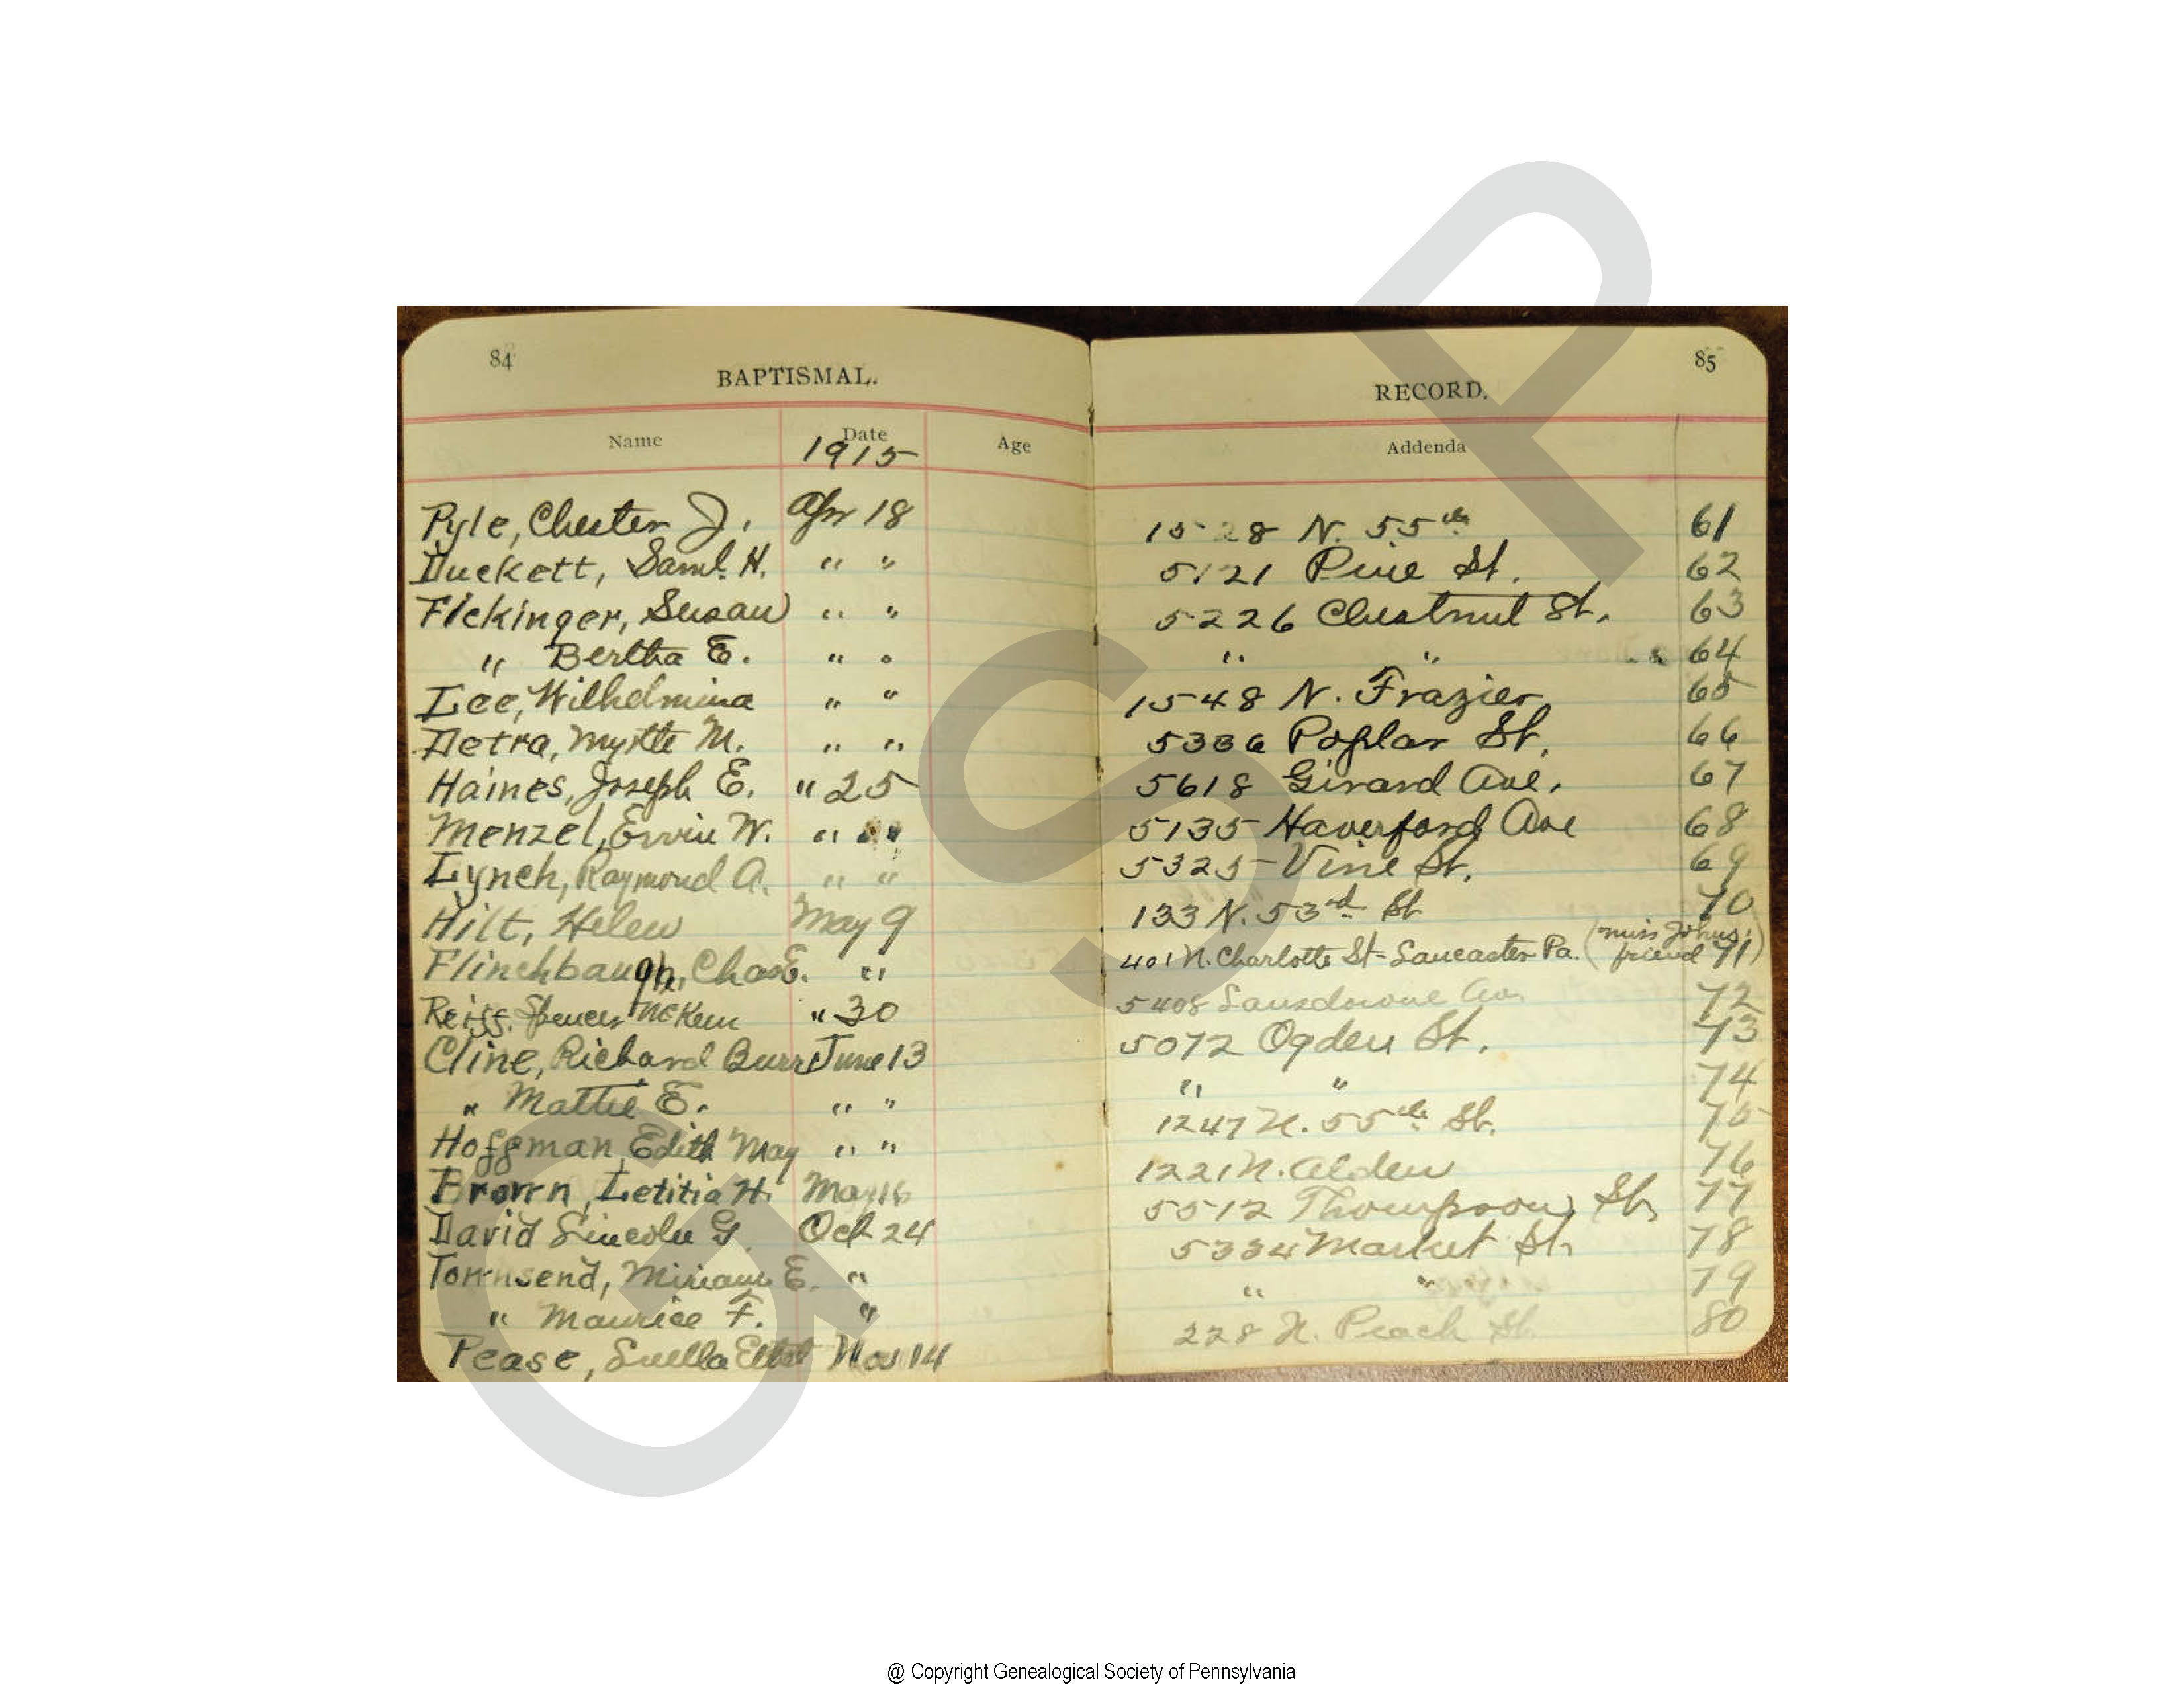 84
BAPTISMAL.
Name Date Age
1915
Pyle, Chester J. Apr 18
Duckett, Saml. H. " "
Flckinger, Susan " "
" Bertha E. " "
Lee, Wilhelmina " "
Detra, Myrtle M. " "
Haines, Joseph E. " 25
Menzel, Ervin W. " "
Lynch, Raymond A. " "
Hilt, Helen May 9
Flinchbaugh, Chas E. "
Reiss, Spencer McKein " 30
Cline, Richard Burr June 13
" Mattie E. " "
Hoffman, Edith May " "
Brown, Letitia H. May 16
David Lincoln G. Oct 24
Townsend, Miriam E. "
" Maurice F. "
Pease, Luella Nov 14
85
RECORD.
Addenda
1528 N. 55th 61
5121 Pine St. 62
5226 Chestnut St. 63
" " 64
1548 N. Frazier 65
5336 Poplar St. 66
5618 Girard Ave. 67
5135 Haverford Ave 68
5325 Vine St. 69
133 N. 53rd St 70
401 N. Charlotte St - Lancaster Pa. (Miss Johns' friend) 71
5408 Lansdowne Av. 72
5072 Ogden St. 73
" " 74
1247 N. 55th St. 75
1221 N. Alden 76
5512 Thompson St. 77
5334 Market St. 78
" " 79
228 N. Peach St. 80
GSP
@ Copyright Genealogical Society of Pennsylvania